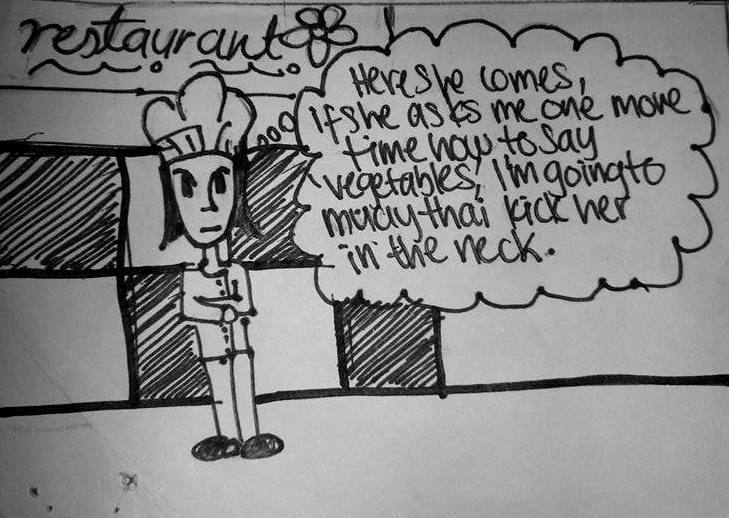 restaurant
Here she comes,
if she asks me one more
time how to say
vegetables, I'm going to
muay thai kick her
in the neck.